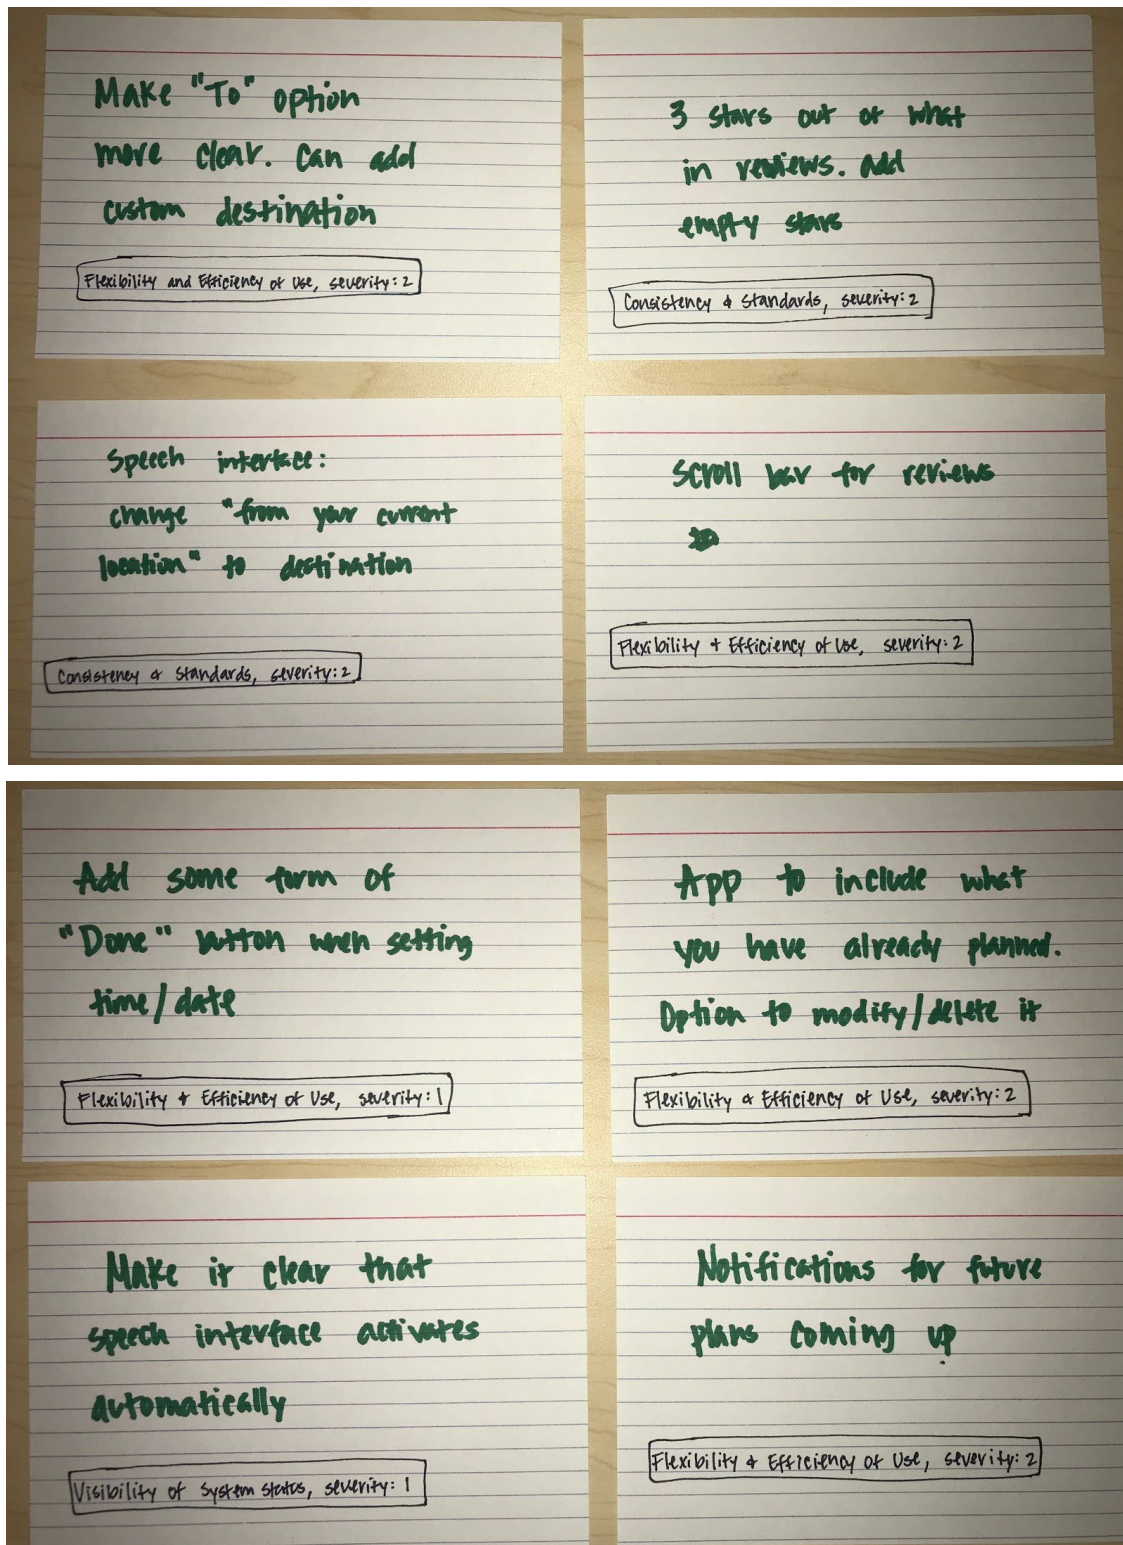 Make "To" option
more clear. Can add
custom destination
Flexibility and Efficiency of Use, severity: 2
3 stars out of what
in reviews. add
empty stars
Consistency & Standards, severity: 2
Speech interface:
change "from your current
location" to destination
Consistency & Standards, severity: 2
Scroll bar for reviews
Flexibility + Efficiency of Use, severity: 2
Add some form of
"Done" button when setting
time/date
Flexibility + Efficiency of Use, severity: 1
App to include what
you have already planned.
Option to modify/delete it
Flexibility & Efficiency of Use, severity: 2
Make it clear that
speech interface activates
automatically
Visibility of System Status, severity: 1
Notifications for future
plans coming up
Flexibility & Efficiency of Use, severity: 2